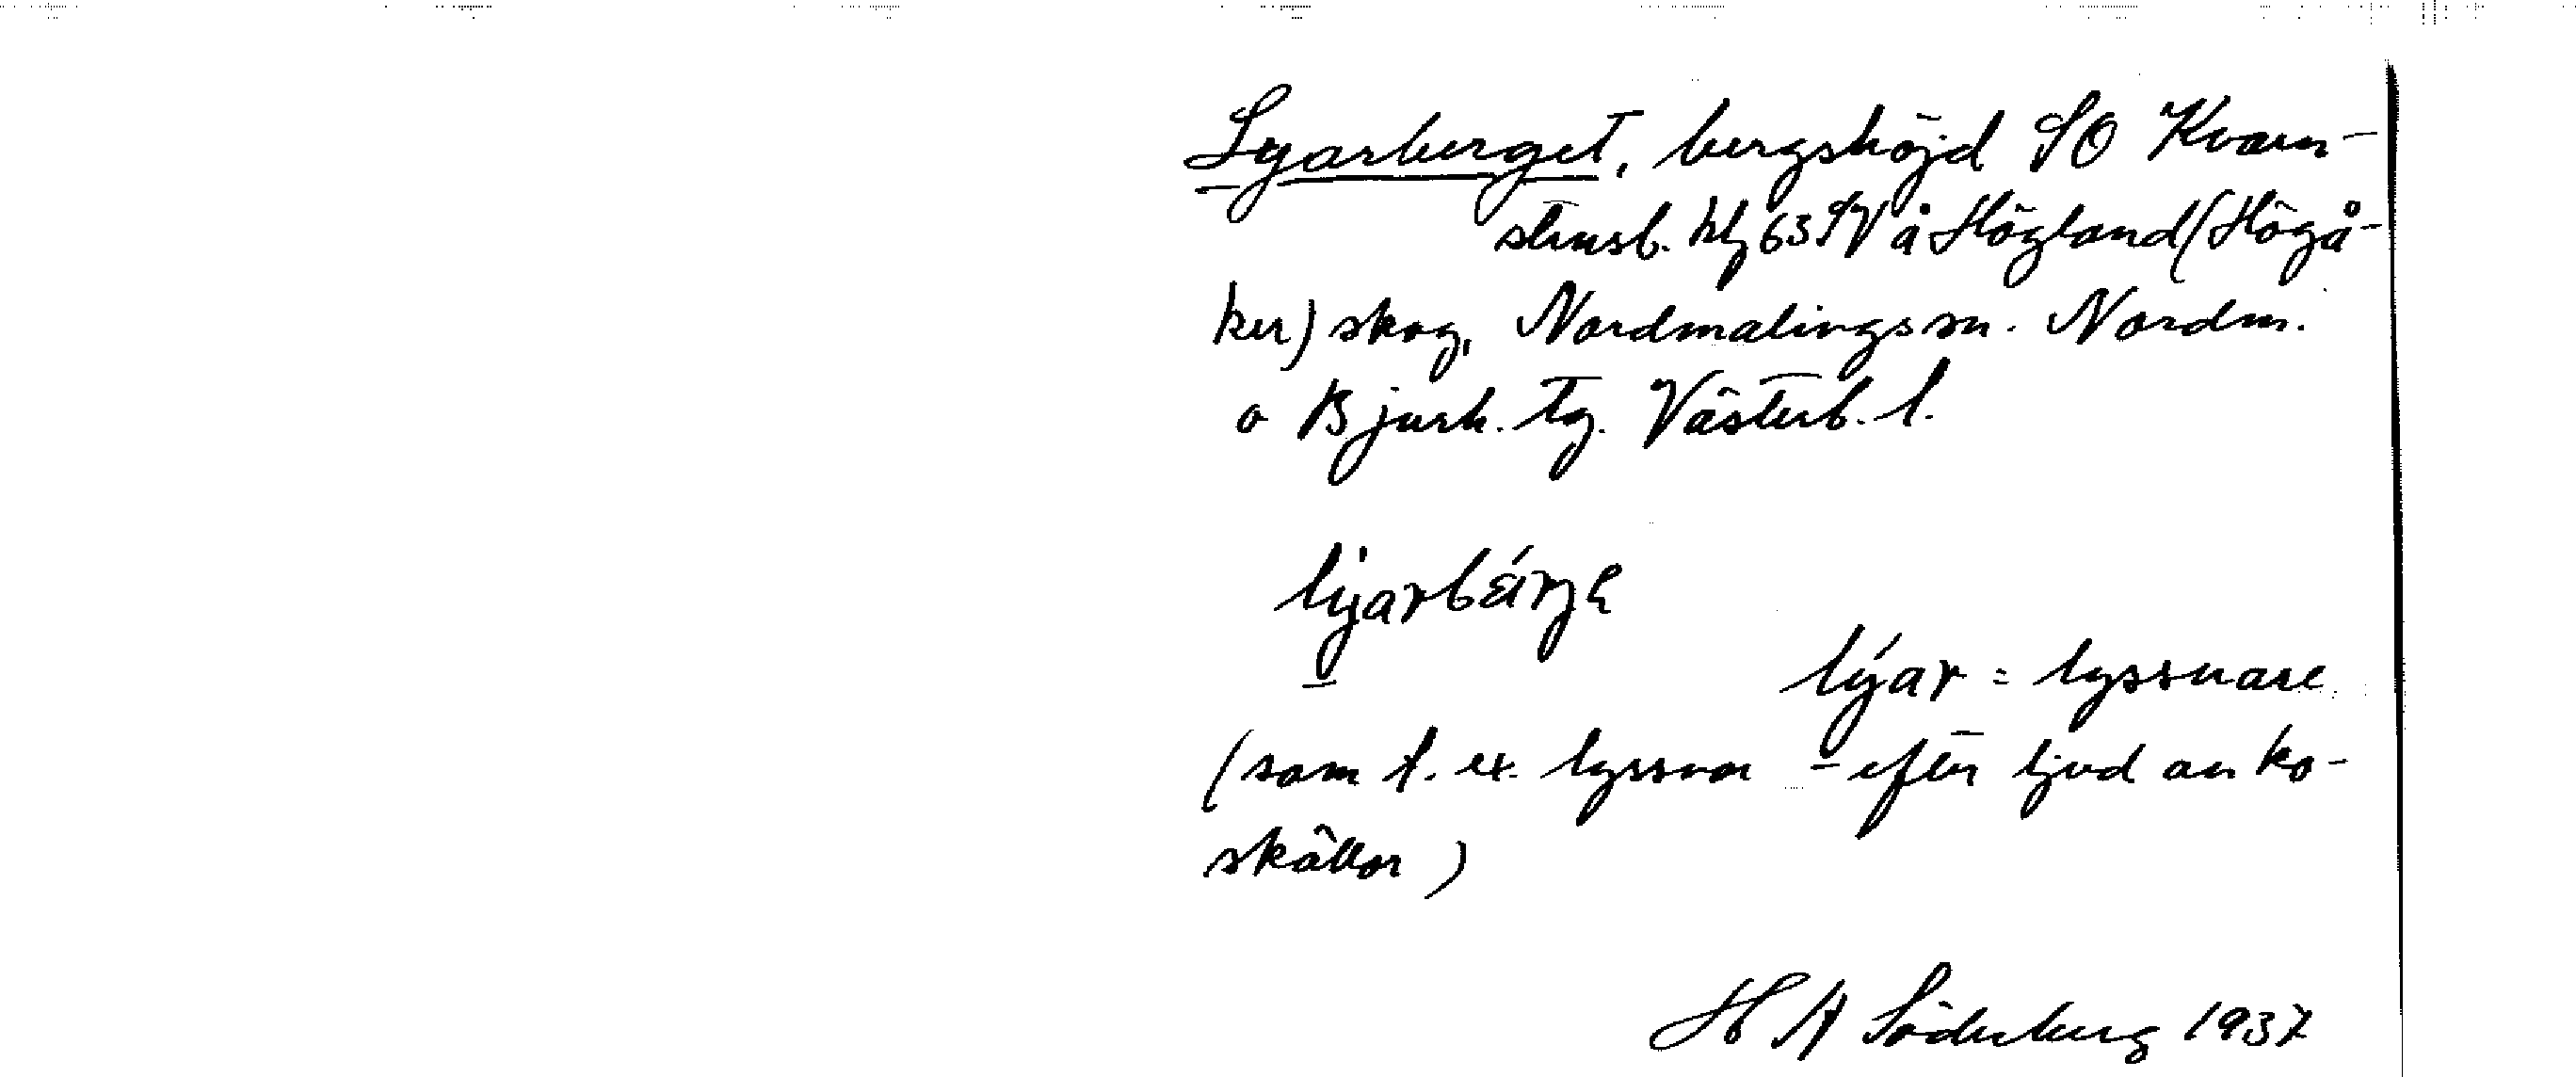 Lyarberget, bergshöjd SO Kvarn-
stensb. blz 63 SV å Högland (Högå-
ker) skog, Nordmalings sn. Nordm.
o Bjurh. tg. Västerb. l.
ly̱arbärjε
ly̱ar = lyssnare
(som t. ex. lyssnar efter ljud av ko-
skällor)
H A Söderberg 1937